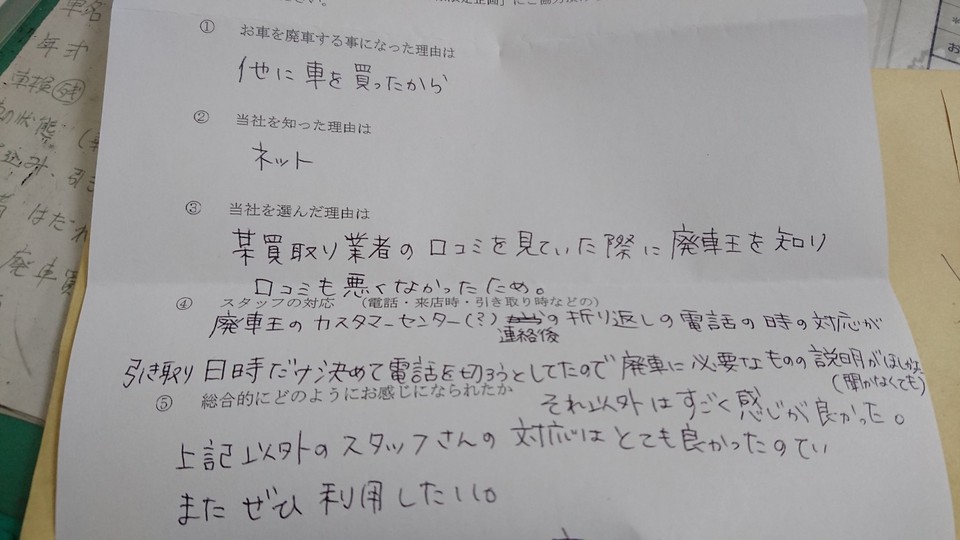 さい。
① お車を廃車する事になった理由は
他に車を買ったから
② 当社を知った理由は
ネット
③ 当社を選んだ理由は
某買取り業者の口コミを見ていた際に廃車王を知り
口コミも悪くなかったため。
④ スタッフの対応 (電話・来店時・引き取り時などの)
廃車王のカスタマーセンター(?) の折り返しの電話の時の対応が
連絡後
引き取り日時だけ決めて電話を切ろうとしてたので廃車に必要なものの説明がほしかった
(聞かなくても)
⑤ 総合的にどのようにお感じになられたか
それ以外はすごく感じが良かった。
上記以外のスタッフさんの対応はとても良かったのでい
またぜひ利用したい。
車名
年式
車検
の状態
込み、引き
はだれ
廃車買